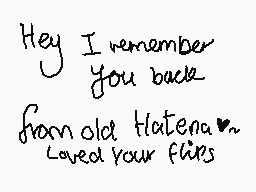 Hey I remember
you back
from old Hatena♥~
Loved your flips